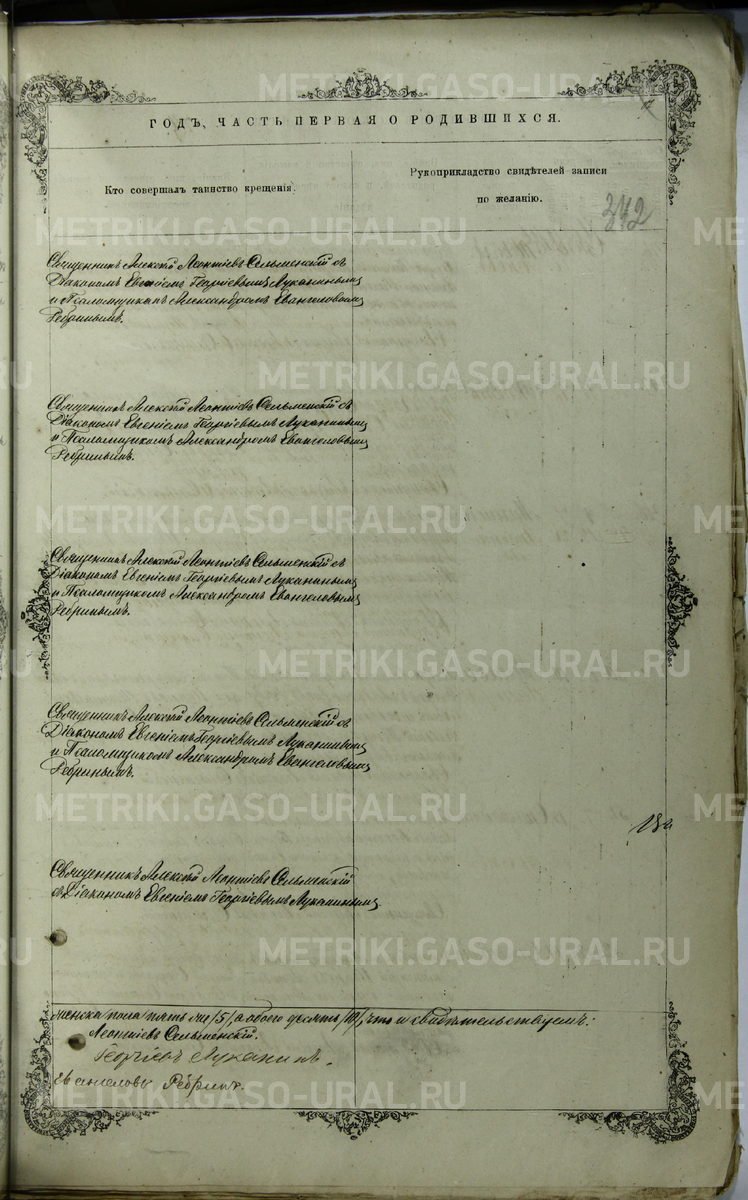 ГОДЪ, ЧАСТЬ ПЕРВАЯ О РОДИВШИХСЯ.
Кто совершалъ таинство крещенія.
Рукоприкладство свидѣтелей записи
по желанію.
242
Священникъ Алексій Леонтіевъ Сельменскій съ
Діакономъ Евгеніемъ Георгіевымъ Луканинымъ
и Псаломщикомъ Александромъ Евангеловымъ
Ребринымъ.
Священникъ Алексій Леонтіевъ Сельменскій съ
Діакономъ Евгеніемъ Георгіевымъ Луканинымъ
и Псаломщикомъ Александромъ Евангеловымъ
Ребринымъ.
Священникъ Алексій Леонтіевъ Сельменскій съ
Діакономъ Евгеніемъ Георгіевымъ Луканинымъ
и Псаломщикомъ Александромъ Евангеловымъ
Ребринымъ.
Священникъ Алексій Леонтіевъ Сельменскій съ
Діакономъ Евгеніемъ Георгіевымъ Луканинымъ
и Псаломщикомъ Александромъ Евангеловымъ
Ребринымъ.
Священникъ Алексій Леонтіевъ Сельменскій
съ Діакономъ Евгеніемъ Георгіевымъ Луканинымъ
женска пола пять /5/, а обоего десять /10/, что и свидѣтельствуемъ:
Леонтіевъ Сельменскій.
Георгіевъ Луканинъ.
Евангеловъ Ребринъ.
METRIKI.GASO-URAL.RU